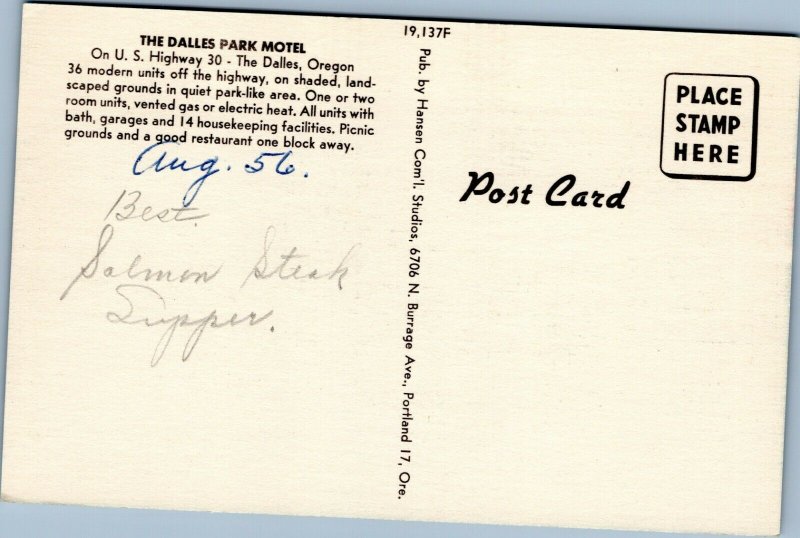 THE DALLES PARK MOTEL
On U. S. Highway 30 - The Dalles, Oregon
36 modern units off the highway, on shaded, land-
scaped grounds in quiet park-like area. One or two
room units, vented gas or electric heat. All units with
bath, garages and 14 housekeeping facilities. Picnic
grounds and a good restaurant one block away.
Aug. 56.
Best
Salmon Steak
Supper.
19,137F
Pub. by Hansen Com'l. Studios, 6706 N. Burrage Ave., Portland 17, Ore.
Post Card
PLACE
STAMP
HERE